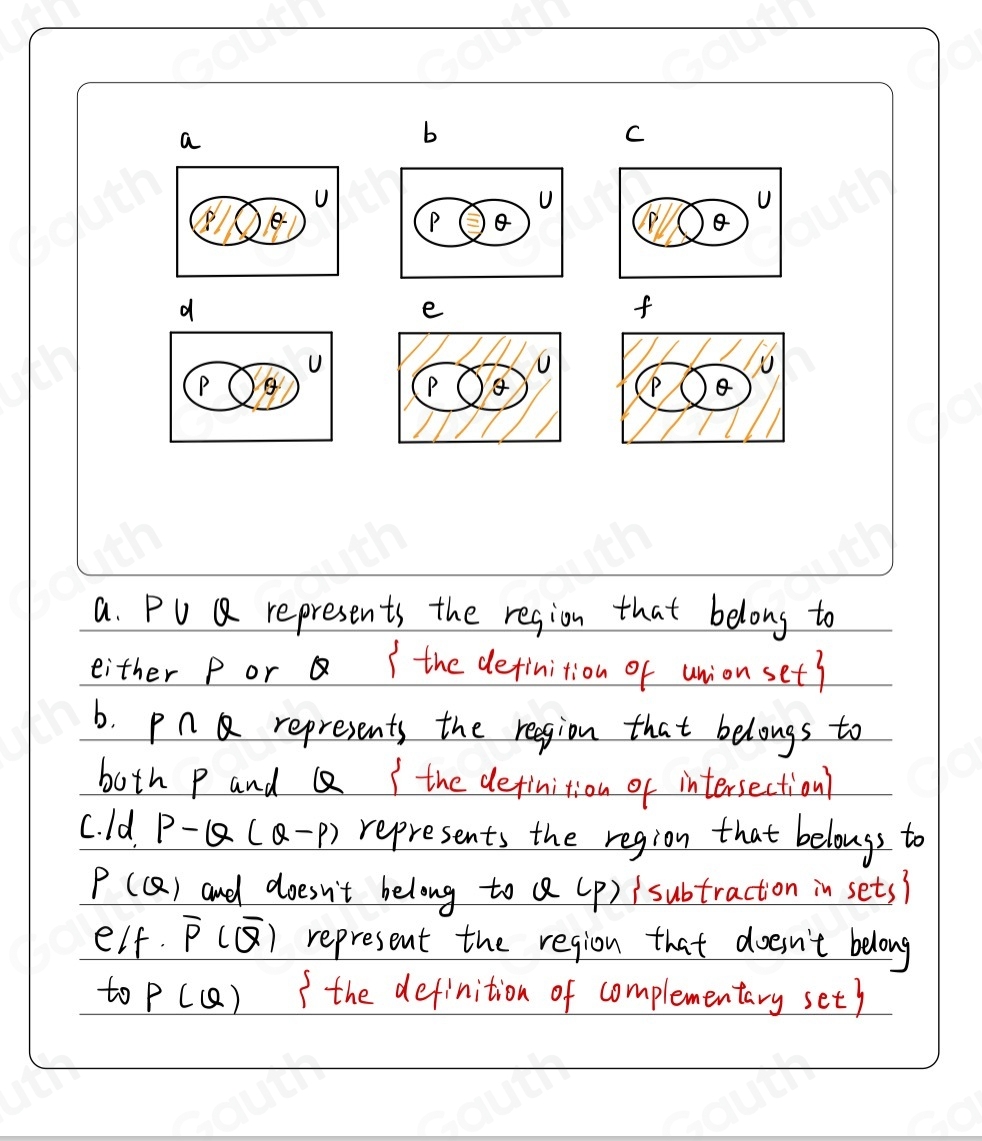 a b c
P Q U P Q U P Q U
d e f
P Q U P Q U P Q U
a. P ∪ Q represents the region that belong to
either P or Q {the definition of union set}
b. P ∩ Q represents the region that belongs to
both P and Q {the definition of intersection}
c./d. P-Q (Q-P) represents the region that belongs to
P (Q) and doesn't belong to Q (P) {subtraction in sets}
e/f. P̅ (Q̅) represent the region that doesn't belong
to P (Q) {the definition of complementary set}
Gauth